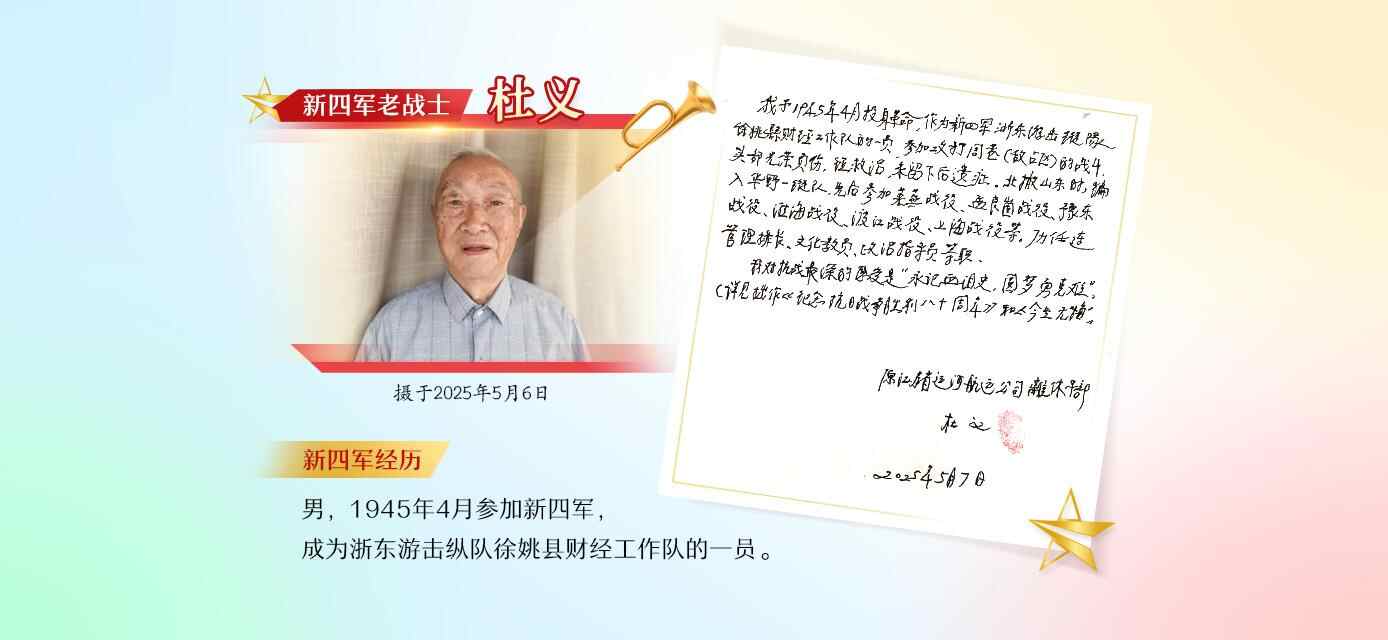 新四军老战士 杜义
摄于2025年5月6日
新四军经历
男，1945年4月参加新四军，
成为浙东游击纵队徐姚县财经工作队的一员。
我于1945年4月投身革命,作为新四军浙东游击纵队
徐姚县财经工作队的一员,参加攻打周巷(敌占区)的战斗,
头部光荣负伤,经救治,未留下后遗症。北撤山东时,编
入华野一纵队,先后参加莱芜战役、孟良崮战役、豫东
战役、淮海战役、渡江战役、上海战役等。历任连
管理排长、文化教员、政治指导员等职、
我对抗战最深的感受是"永记血泪史,圆梦勇克难"。
(详见拙作《纪念抗日战争胜利八十周年》和《今生无悔》。
原江苏省运河航运公司离休干部
杜义
2025年5月7日